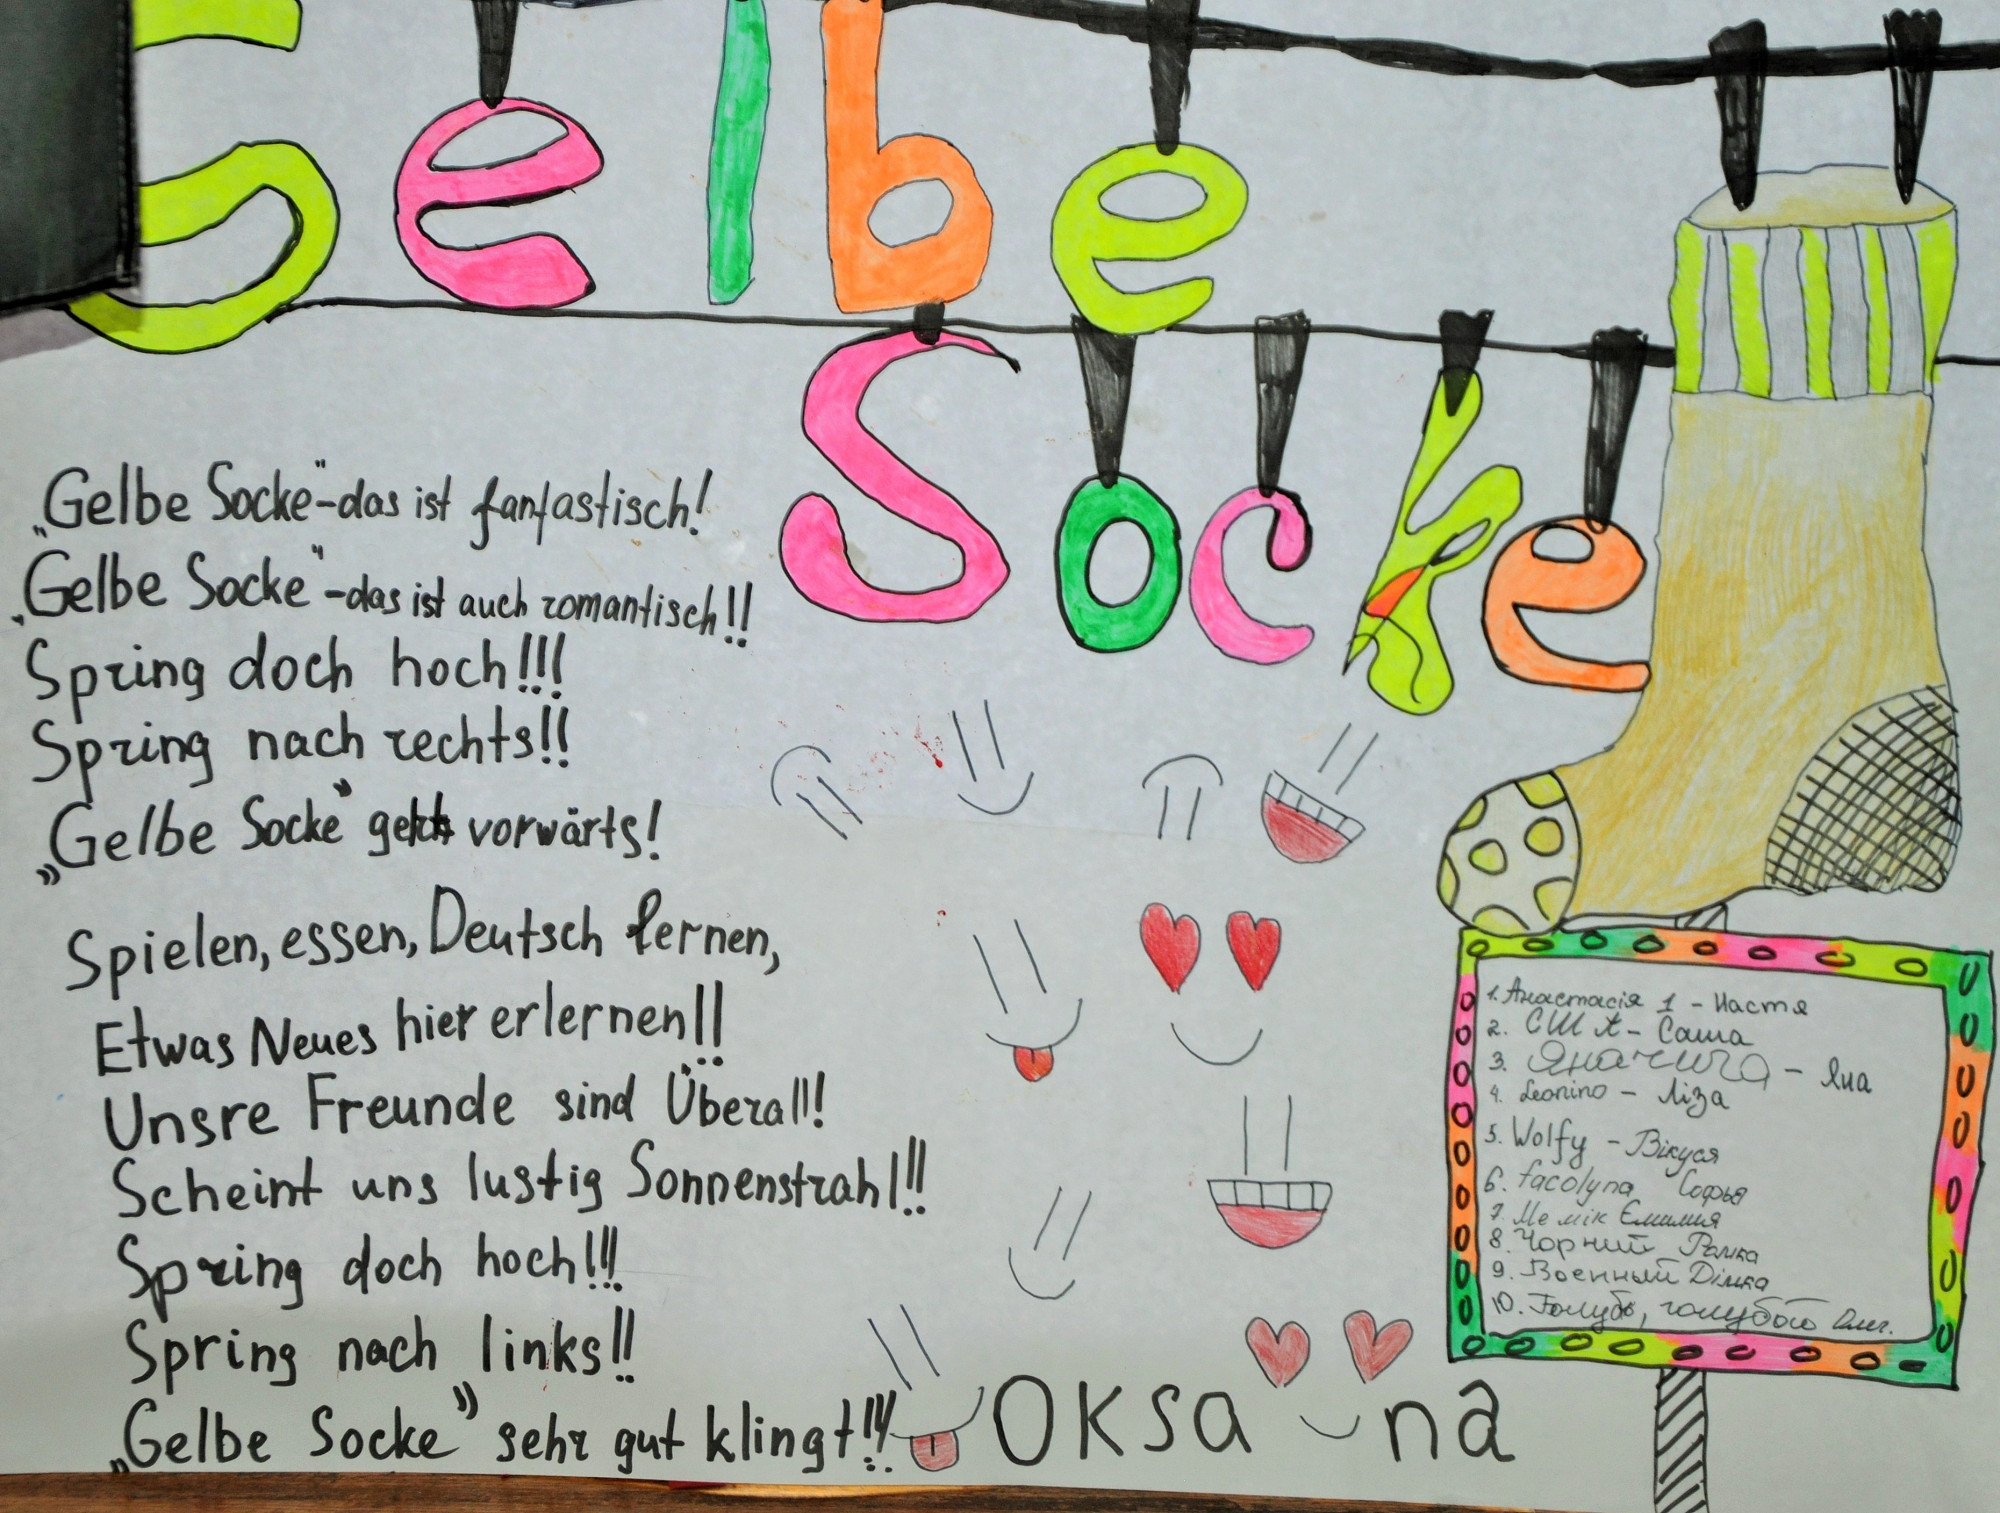 Gelbe
Socke
„Gelbe Socke"-das ist fantastisch!
„Gelbe Socke"-das ist auch romantisch!!
Spring doch hoch!!!
Spring nach rechts!!
„Gelbe Socke" geht vorwärts!
Spielen, essen, Deutsch lernen,
Etwas Neues hier erlernen!!
Unsre Freunde sind Überall!
Scheint uns lustig Sonnenstrahl!!
Spring doch hoch!!!
Spring nach links!!
„Gelbe Socke" sehr gut klingt!!!
Oksana
1. Анастасія 1 - Настя
2. США - Саша
3. Яначига - Яна
4. Leonino - Ліза
5. Wolfy - Вікуся
6. facolyna Софья
7. Ме мік Ємилия
8. Чорний Ромка
9. Военный Дімка
10. Голубь, голубой Олег.